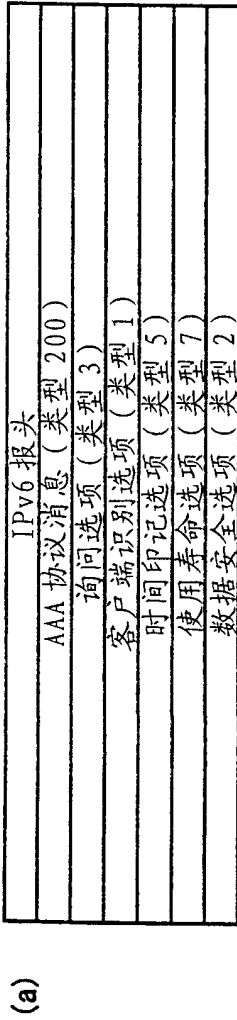 (a)
IPv6 报头
AAA 协议消息 (类型 200)
询问选项 (类型 3)
客户端识别选项 (类型 1)
时间印记选项 (类型 5)
使用寿命选项 (类型 7)
数据安全选项 (类型 2)